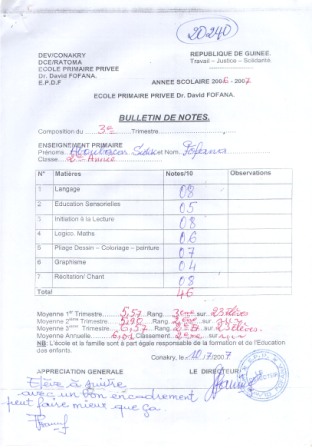 20240
DEV/CONAKRY
DCE/RATOMA
ECOLE PRIMAIRE PRIVEE
Dr. David FOFANA.
E.P.D.F
REPUBLIQUE DE GUINEE.
Travail – Justice – Solidarité
ANNEE SCOLAIRE 2006 - 2007
ECOLE PRIMAIRE PRIVEE Dr. David FOFANA.
BULLETIN DE NOTES.
Composition du 3e Trimestre
ENSEIGNEMENT PRIMAIRE
Prénoms Aboubacar et Nom: Fofana
Classe 2e Année
N° Matières Notes/10 Observations
1 Langage 08
2 Education Sensorielles 05
3 Initiation à la Lecture 08
4 Logico. Maths. 06
5 Pliage Dessin – Coloriage – peinture 07
6 Graphisme 04
7 Récitation/ Chant 08
Total 46
Moyenne 1er Trimestre 5,57 Rang 3ème sur 23 élèves
Moyenne 2ème Trimestre Rang 2ème sur
Moyenne 3ème Trimestre 6,57 Rang sur 23 élèves.
Moyenne Annuelle Classement 2ème sur
NB: L'école et la famille sont à part égale responsable de la formation et de l'Education
des enfants.
Conakry, le 10/7/2007
APPRECIATION GENERALE LE DIRECTEUR
Elève à suivre
avec un bon encadrement
peut faire mieux que ça.